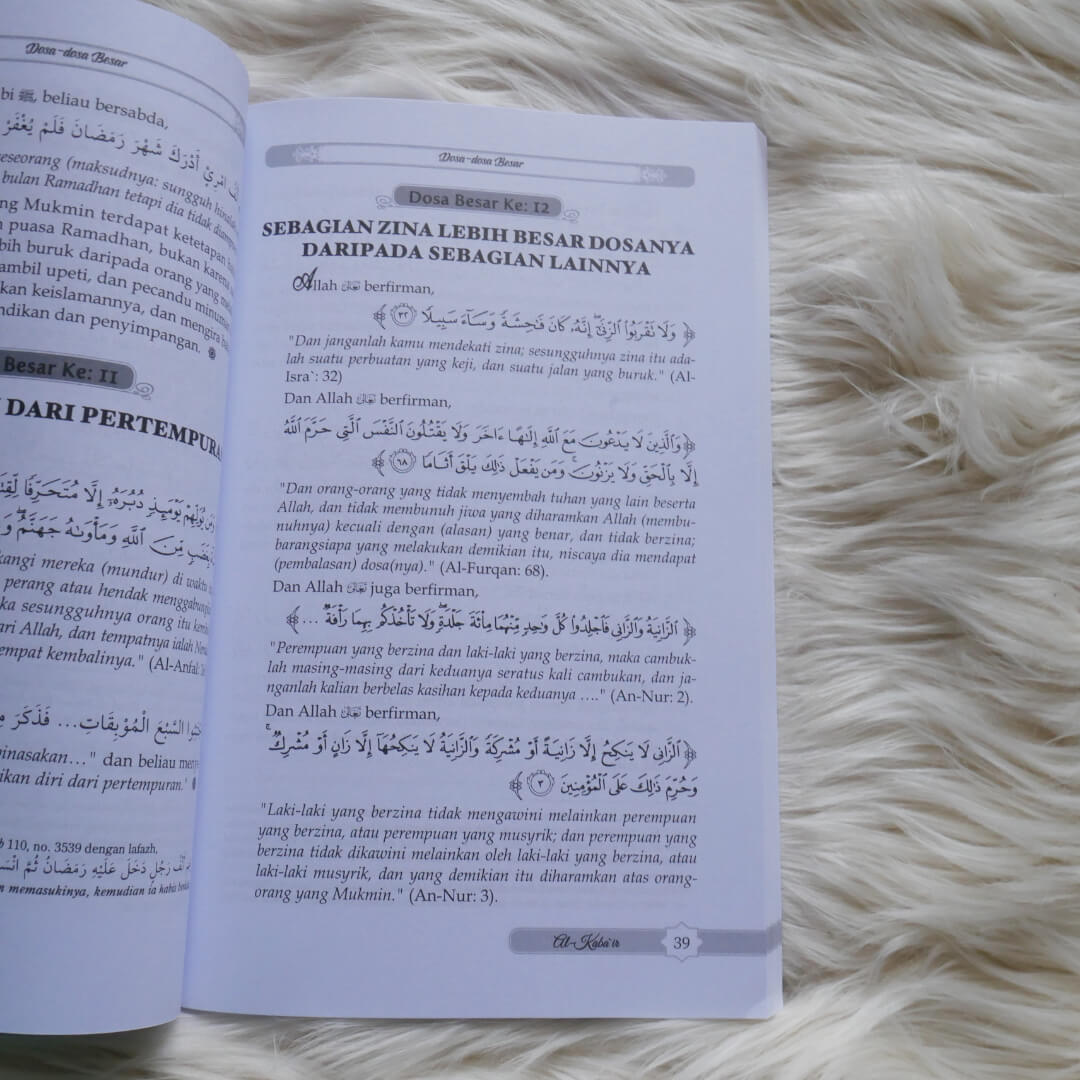 Dosa-dosa Besar
bi ﷺ, beliau bersabda,
امْرِئٍ أَدْرَكَ شَهْرَ رَمَضَانَ فَلَمْ يُغْفَرْ
seseorang (maksudnya: sungguh
bulan Ramadhan tetapi dia tidak
ng Mukmin terdapat ketetapan
n puasa Ramadhan, bukan karena
bih buruk daripada orang yang
ambil upeti, dan pecandu
kan keislamannya, dan mengira
ndikan dan penyimpangan.
Besar Ke: 11
DARI PERTEMPURA
يُوَلِّهِمْ يَوْمَئِذٍ دُبُرَهُۥٓ إِلَّا مُتَحَرِّفًا
مِّنَ ٱللَّهِ وَمَأْوَىٰهُ جَهَنَّمُ ۖ وَ
kangi mereka (mundur) di waktu
perang atau hendak
ka sesungguhnya orang itu
ari Allah, dan tempatnya ialah
empat kembalinya." (Al-Anfal:
السَّبْعَ الْمُوْبِقَاتِ... فَذَكَرَ
binasakan..." dan beliau
ikan diri dari pertempuran.'
110, no. 3539 dengan lafazh,
رَجُلٍ دَخَلَ عَلَيْهِ رَمَضَانُ ثُمَّ
n memasukinya, kemudian ia habis
Dosa-dosa Besar
Dosa Besar Ke: 12
SEBAGIAN ZINA LEBIH BESAR DOSANYA
DARIPADA SEBAGIAN LAINNYA
Allah تعالى berfirman,
﴿ وَلَا تَقْرَبُوا۟ ٱلزِّنَىٰٓ ۖ إِنَّهُۥ كَانَ فَـٰحِشَةً وَسَآءَ سَبِيلًا ٣٢ ﴾
"Dan janganlah kamu mendekati zina; sesungguhnya zina itu ada-
lah suatu perbuatan yang keji, dan suatu jalan yang buruk." (Al-
Isra`: 32)
Dan Allah تعالى berfirman,
﴿ وَٱلَّذِينَ لَا يَدْعُونَ مَعَ ٱللَّهِ إِلَـٰهًا ءَاخَرَ وَلَا يَقْتُلُونَ ٱلنَّفْسَ ٱلَّتِى حَرَّمَ ٱللَّهُ
إِلَّا بِٱلْحَقِّ وَلَا يَزْنُونَ ۚ وَمَن يَفْعَلْ ذَٰلِكَ يَلْقَ أَثَامًا ٦٨ ﴾
"Dan orang-orang yang tidak menyembah tuhan yang lain beserta
Allah, dan tidak membunuh jiwa yang diharamkan Allah (membu-
nuhnya) kecuali dengan (alasan) yang benar, dan tidak berzina;
barangsiapa yang melakukan demikian itu, niscaya dia mendapat
(pembalasan) dosa(nya)." (Al-Furqan: 68).
Dan Allah تعالى juga berfirman,
﴿ ٱلزَّانِيَةُ وَٱلزَّانِى فَٱجْلِدُوا۟ كُلَّ وَٰحِدٍ مِّنْهُمَا مِا۟ئَةَ جَلْدَةٍ ۖ وَلَا تَأْخُذْكُم بِهِمَا رَأْفَةٌ ... ﴾
"Perempuan yang berzina dan laki-laki yang berzina, maka cambuk-
lah masing-masing dari keduanya seratus kali cambukan, dan ja-
nganlah kalian berbelas kasihan kepada keduanya ...." (An-Nur: 2).
Dan Allah تعالى berfirman,
﴿ ٱلزَّانِى لَا يَنكِحُ إِلَّا زَانِيَةً أَوْ مُشْرِكَةً وَٱلزَّانِيَةُ لَا يَنكِحُهَآ إِلَّا زَانٍ أَوْ مُشْرِكٌ ۚ
وَحُرِّمَ ذَٰلِكَ عَلَى ٱلْمُؤْمِنِينَ ٣ ﴾
"Laki-laki yang berzina tidak mengawini melainkan perempuan
yang berzina, atau perempuan yang musyrik; dan perempuan yang
berzina tidak dikawini melainkan oleh laki-laki yang berzina, atau
laki-laki musyrik, dan yang demikian itu diharamkan atas orang-
orang yang Mukmin." (An-Nur: 3).
Al-Kaba`ir 39